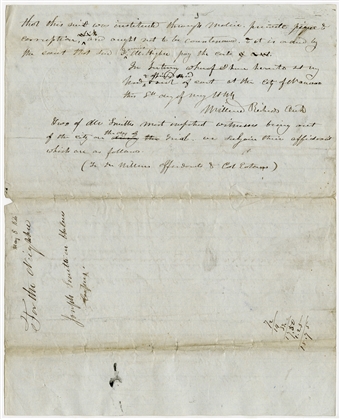 that this suit was instituted through malice, private pique &
corruption, and ought not to be countenanced; & it is ordered by
the court that said pay the costs of suit.
In testimony whereof I have hereunto set my
hand & seal of court at the city of Nauvoo
this 8th day of May 1844
Willard Richards Clerk
Two of Mr Smiths most important witnesses being out
of the city on the day of the trial. we subjoin their affidavits
which are as follows
(In Dr affidavits & Col)
For the Neighbor
May 8
Joseph Smith on Habeas
Corpus